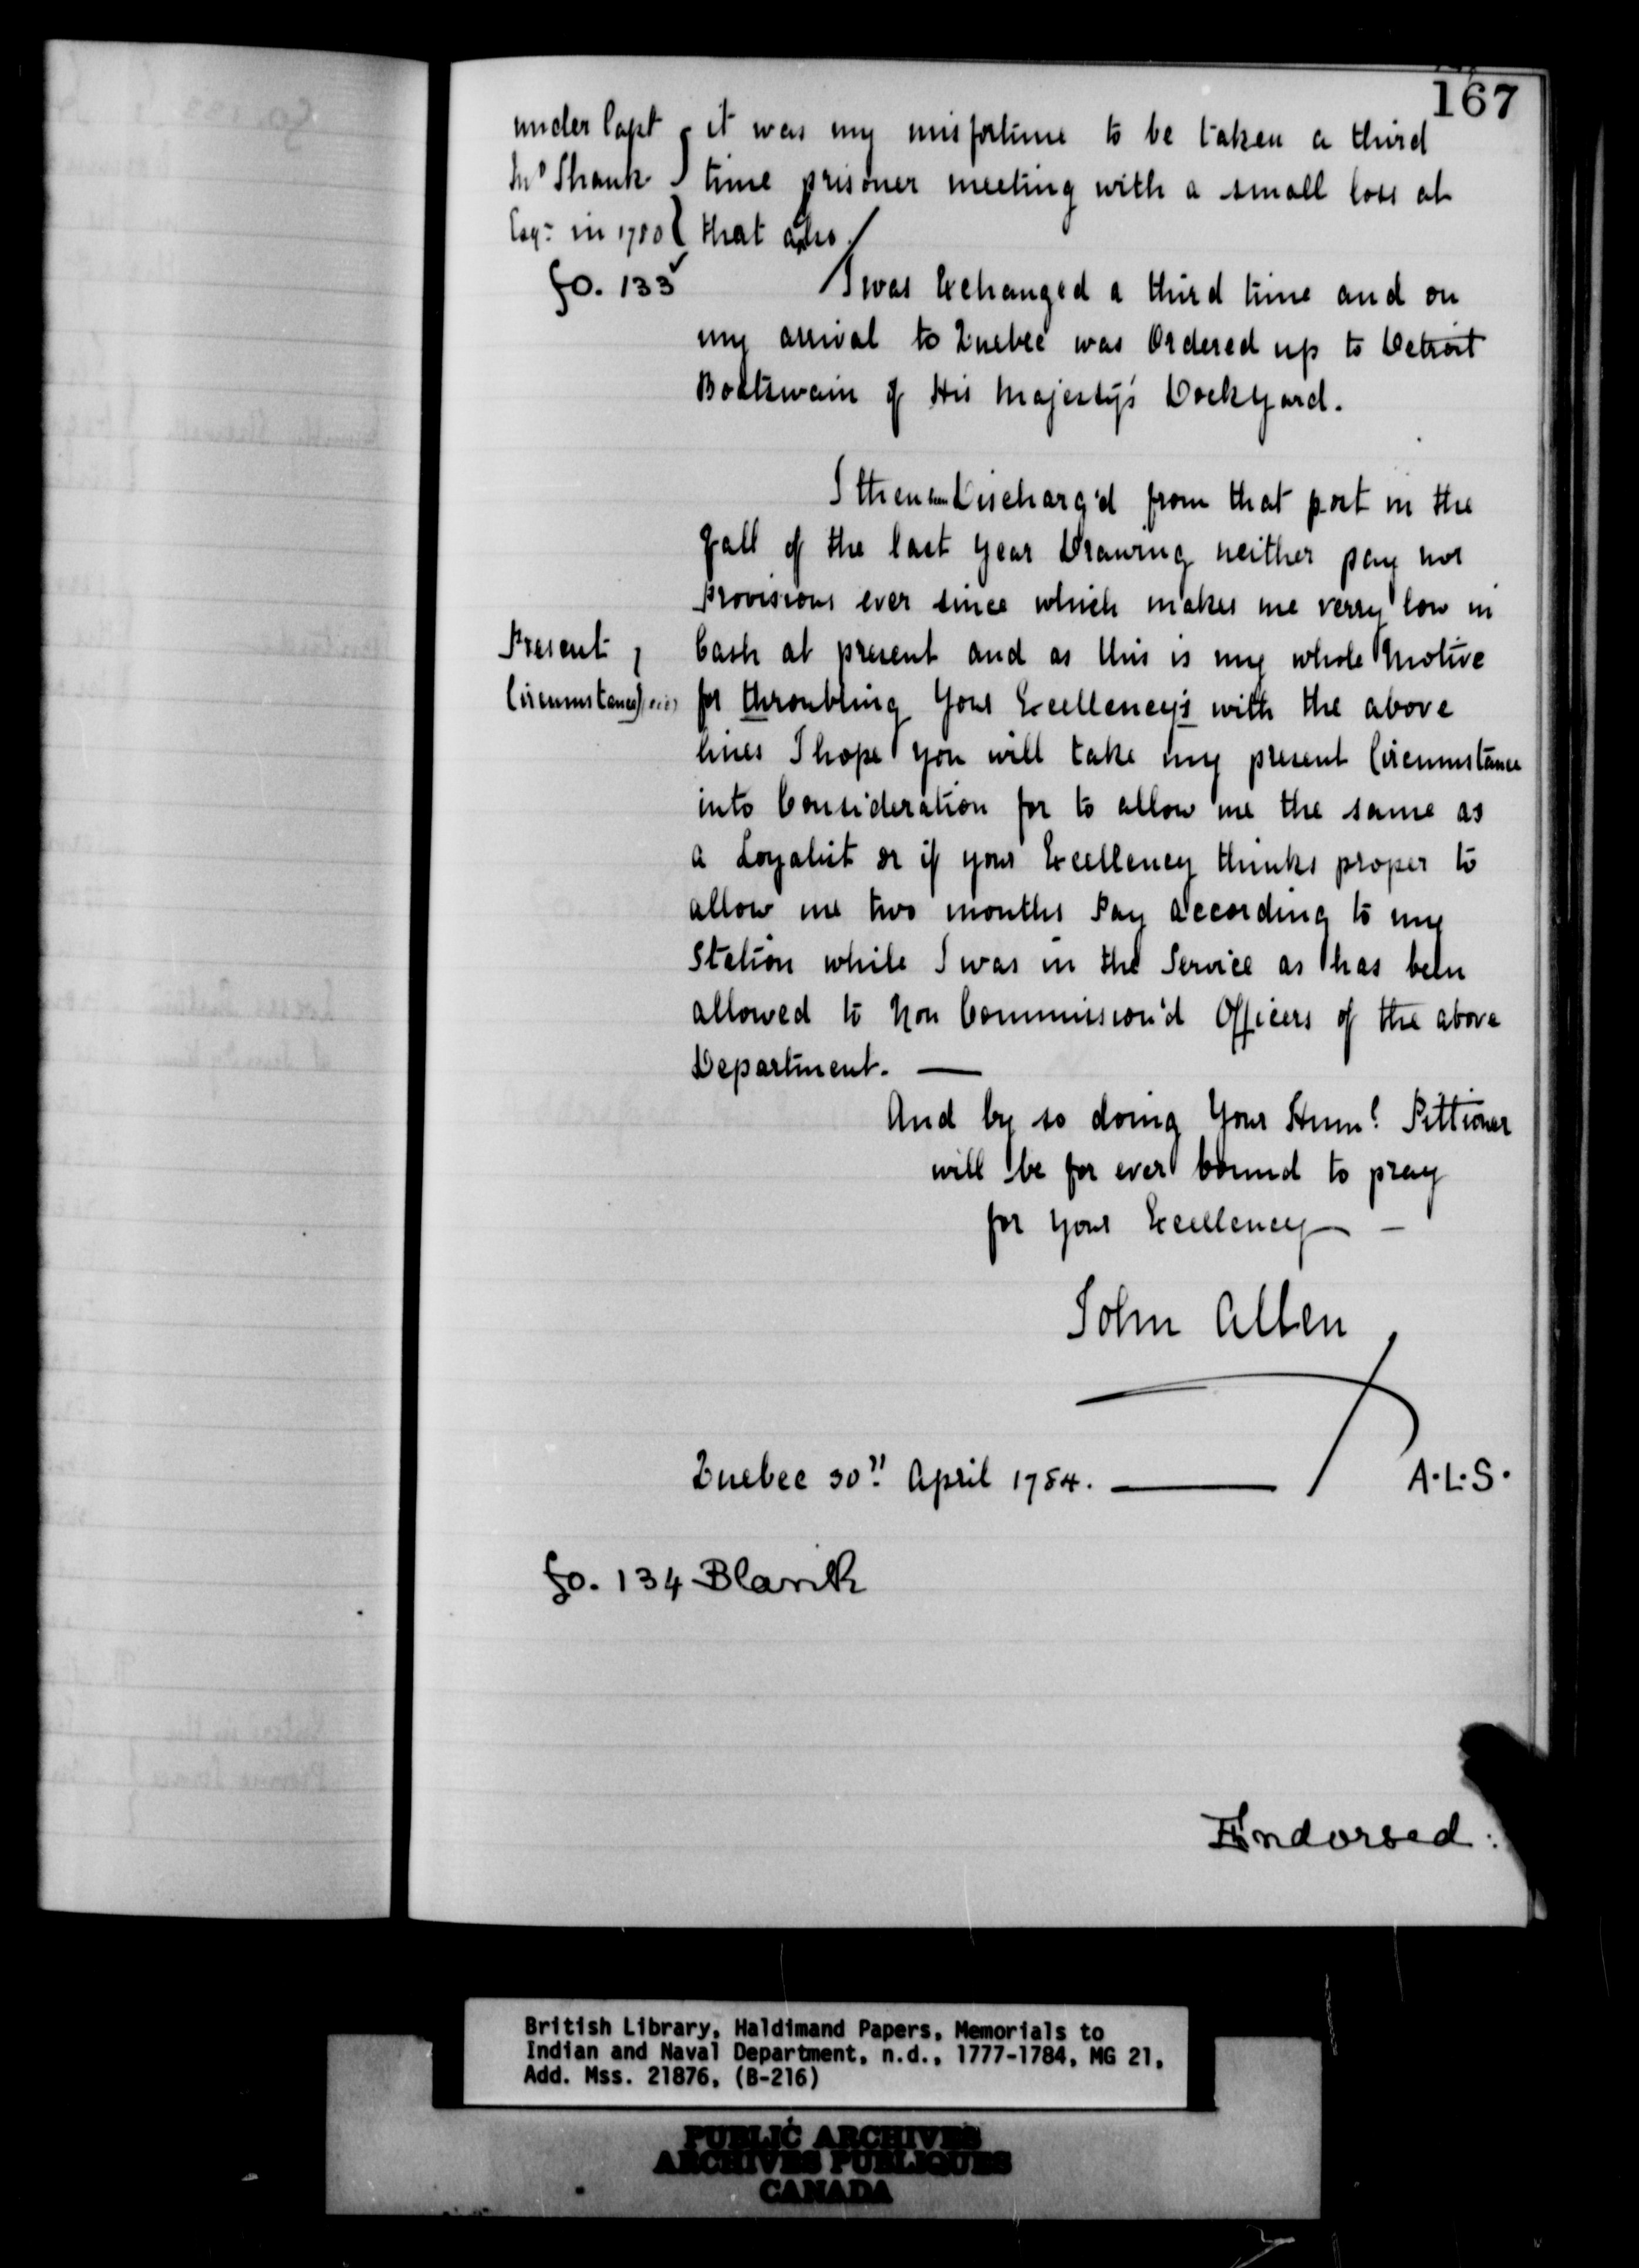 167
under Capt
Mc Shank
Esqr. in 1780
it was my misfortune to be taken a third
time prisoner meeting with a small loss at
that also.
fo. 133
I was Exchanged a third time and on
my arrival to Quebec was Ordered up to Detroit
Boatswain of His Majesty's Dockyard.
I then Discharg'd from that port in the
Fall of the last Year Drawing neither pay nor
Provisions ever since which makes me verry low in
Present
Circumstances
Cash at present and as this is my whole Motive
for throubling Your Excellency's with the above
lines I hope you will take my present Circumstance
into Consideration for to allow me the same as
a Loyalist or if your Excellency thinks proper to
allow me two months Pay according to my
Station while I was in the Service as has been
allowed to Non Commission'd Officers of the above
Department. —
And by so doing Your Huml. Pittioner
will be for ever bound to pray
for your Excellency —
John Allen
Quebec 30" April 1784. —
A.L.S.
fo. 134 Blank
Endorsed:
British Library, Haldimand Papers, Memorials to
Indian and Naval Department, n.d., 1777-1784, MG 21,
Add. Mss. 21876, (B-216)
PUBLIC ARCHIVES
ARCHIVES PUBLIQUES
CANADA